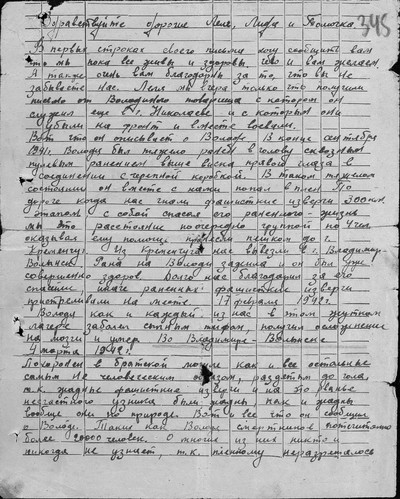 345
Здравствуйте дорогие Леля, Лида и Толочка.
В первых строках своего письма могу сообщить вам
что мы пока все живы и здоровы, чего и вам желаем.
А также очень вам благодарны за то, что вы не
забываете нас. Леля мы вчера только что получили
письмо от Володиного товарища с которым он
служил еще в г. Николаеве и с которым они
убыли на фронт и вместе воевали.
Вот что он описывает о Володе. В конце сентября
1941 г. Володя был тяжело ранен в голову сквозным
пулевым ранением выше виска правого глаза в
соединении с черепной коробкой. В таком тяжелом
состоянии он вместе с нами попал в плен. По
дороге когда нас гнали фашистские изверги 300 км.
этапом с собой спасая его раненного - жизнь
мы это расстояние поочередно группой по 4 чел.
оказывая ему помощь пешком до г.
Кременчуг. Из Кременчуга нас вывезли в г. Владимир-
Волынск. Рана на Володи зажила и он был уже
совершенно здоров. Долго нас благодарил за его
спасение, иначе раненных фашистские изверги
пристреливали на месте. 17 февраля 1942 г.
Володя как и каждый из нас в этом жутком
лагере заболел сыпным тифом, получил осложнение
на мозги и умер. Во Владимире - Волынске
4 марта 1942 г.
Похоронен в братской могиле как и все остальные
самым не человеческим образом, раздетый до гола,
т.к. жадные фашистские изверги и на это рваньё
несчастного узника были жадны как и жадны
вообще они по природе. Вот и все что он сообщил
о Володе. Таких как Володя смертников
более 20000 человек. О многие из них никто и
никогда не узнает, т.к. пленному неразрешалось